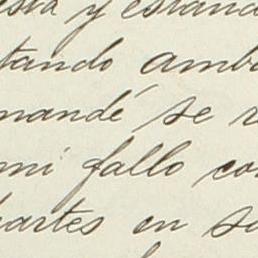 esta y estand
tando amb
mandé se
mi fallo con
partes en su